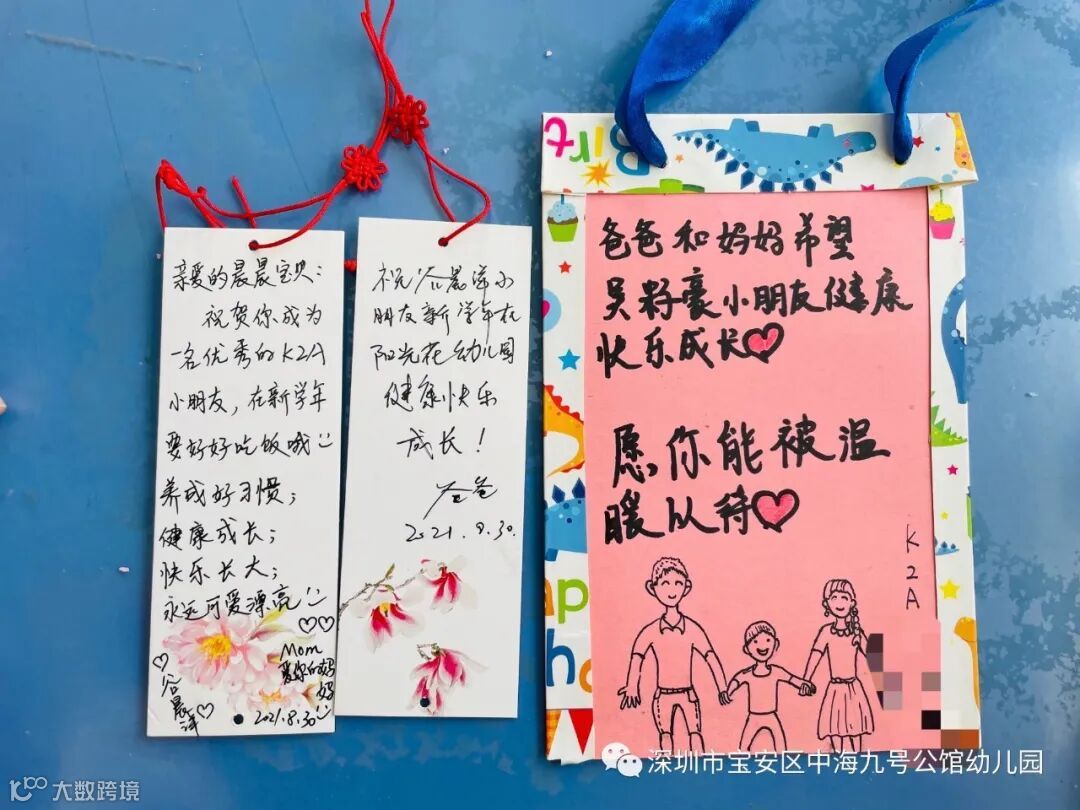 亲爱的晨晨宝贝：
祝贺你成为
一名优秀的K2A
小朋友，在新学年
要好好吃饭哦
养成好习惯；
健康成长；
快乐长大；
永远可爱漂亮
Mom
爱你的妈妈
2021.8.30
谷晨洋
祝谷晨洋小
朋友新学年在
阳光花幼儿园
健康快乐
成长！
谷爸
2021.8.30.
Birt
爸爸和妈妈希望
吴籽豪小朋友健康
快乐成长
愿你能被温
暖以待
K2A
ap
ho
深圳市宝安区中海九号公馆幼儿园
100 大数跨境